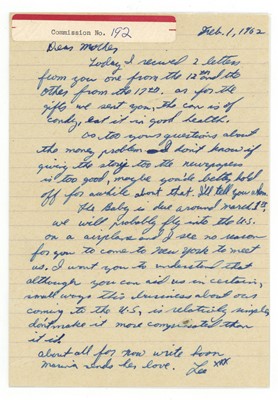 Commission No. 192
Feb. 1, 1962
Dear Mother,
Today I received 2 letters
from you one from the 12th and the
other from the 19th. as for the
gifts we sent you, the can is of
candy, eat it in good health.
as too your questions about
the money problem I don't know if
giving the story too the newspapers
is too good, maybe you'de better hold
off for awhile about that. I'll tell you when
The Baby is due around march 1st,
we will probably fly into the U.S.
on a airplane and I see no reason
for you to come to New York to meet
us. I want you to understand that
although you can aid us in certain,
small ways this business about our
coming to the U.S. is relatively simple,
don't make it more complicated than
it is
about all for now write soon
marina sends her love. Lee xxx